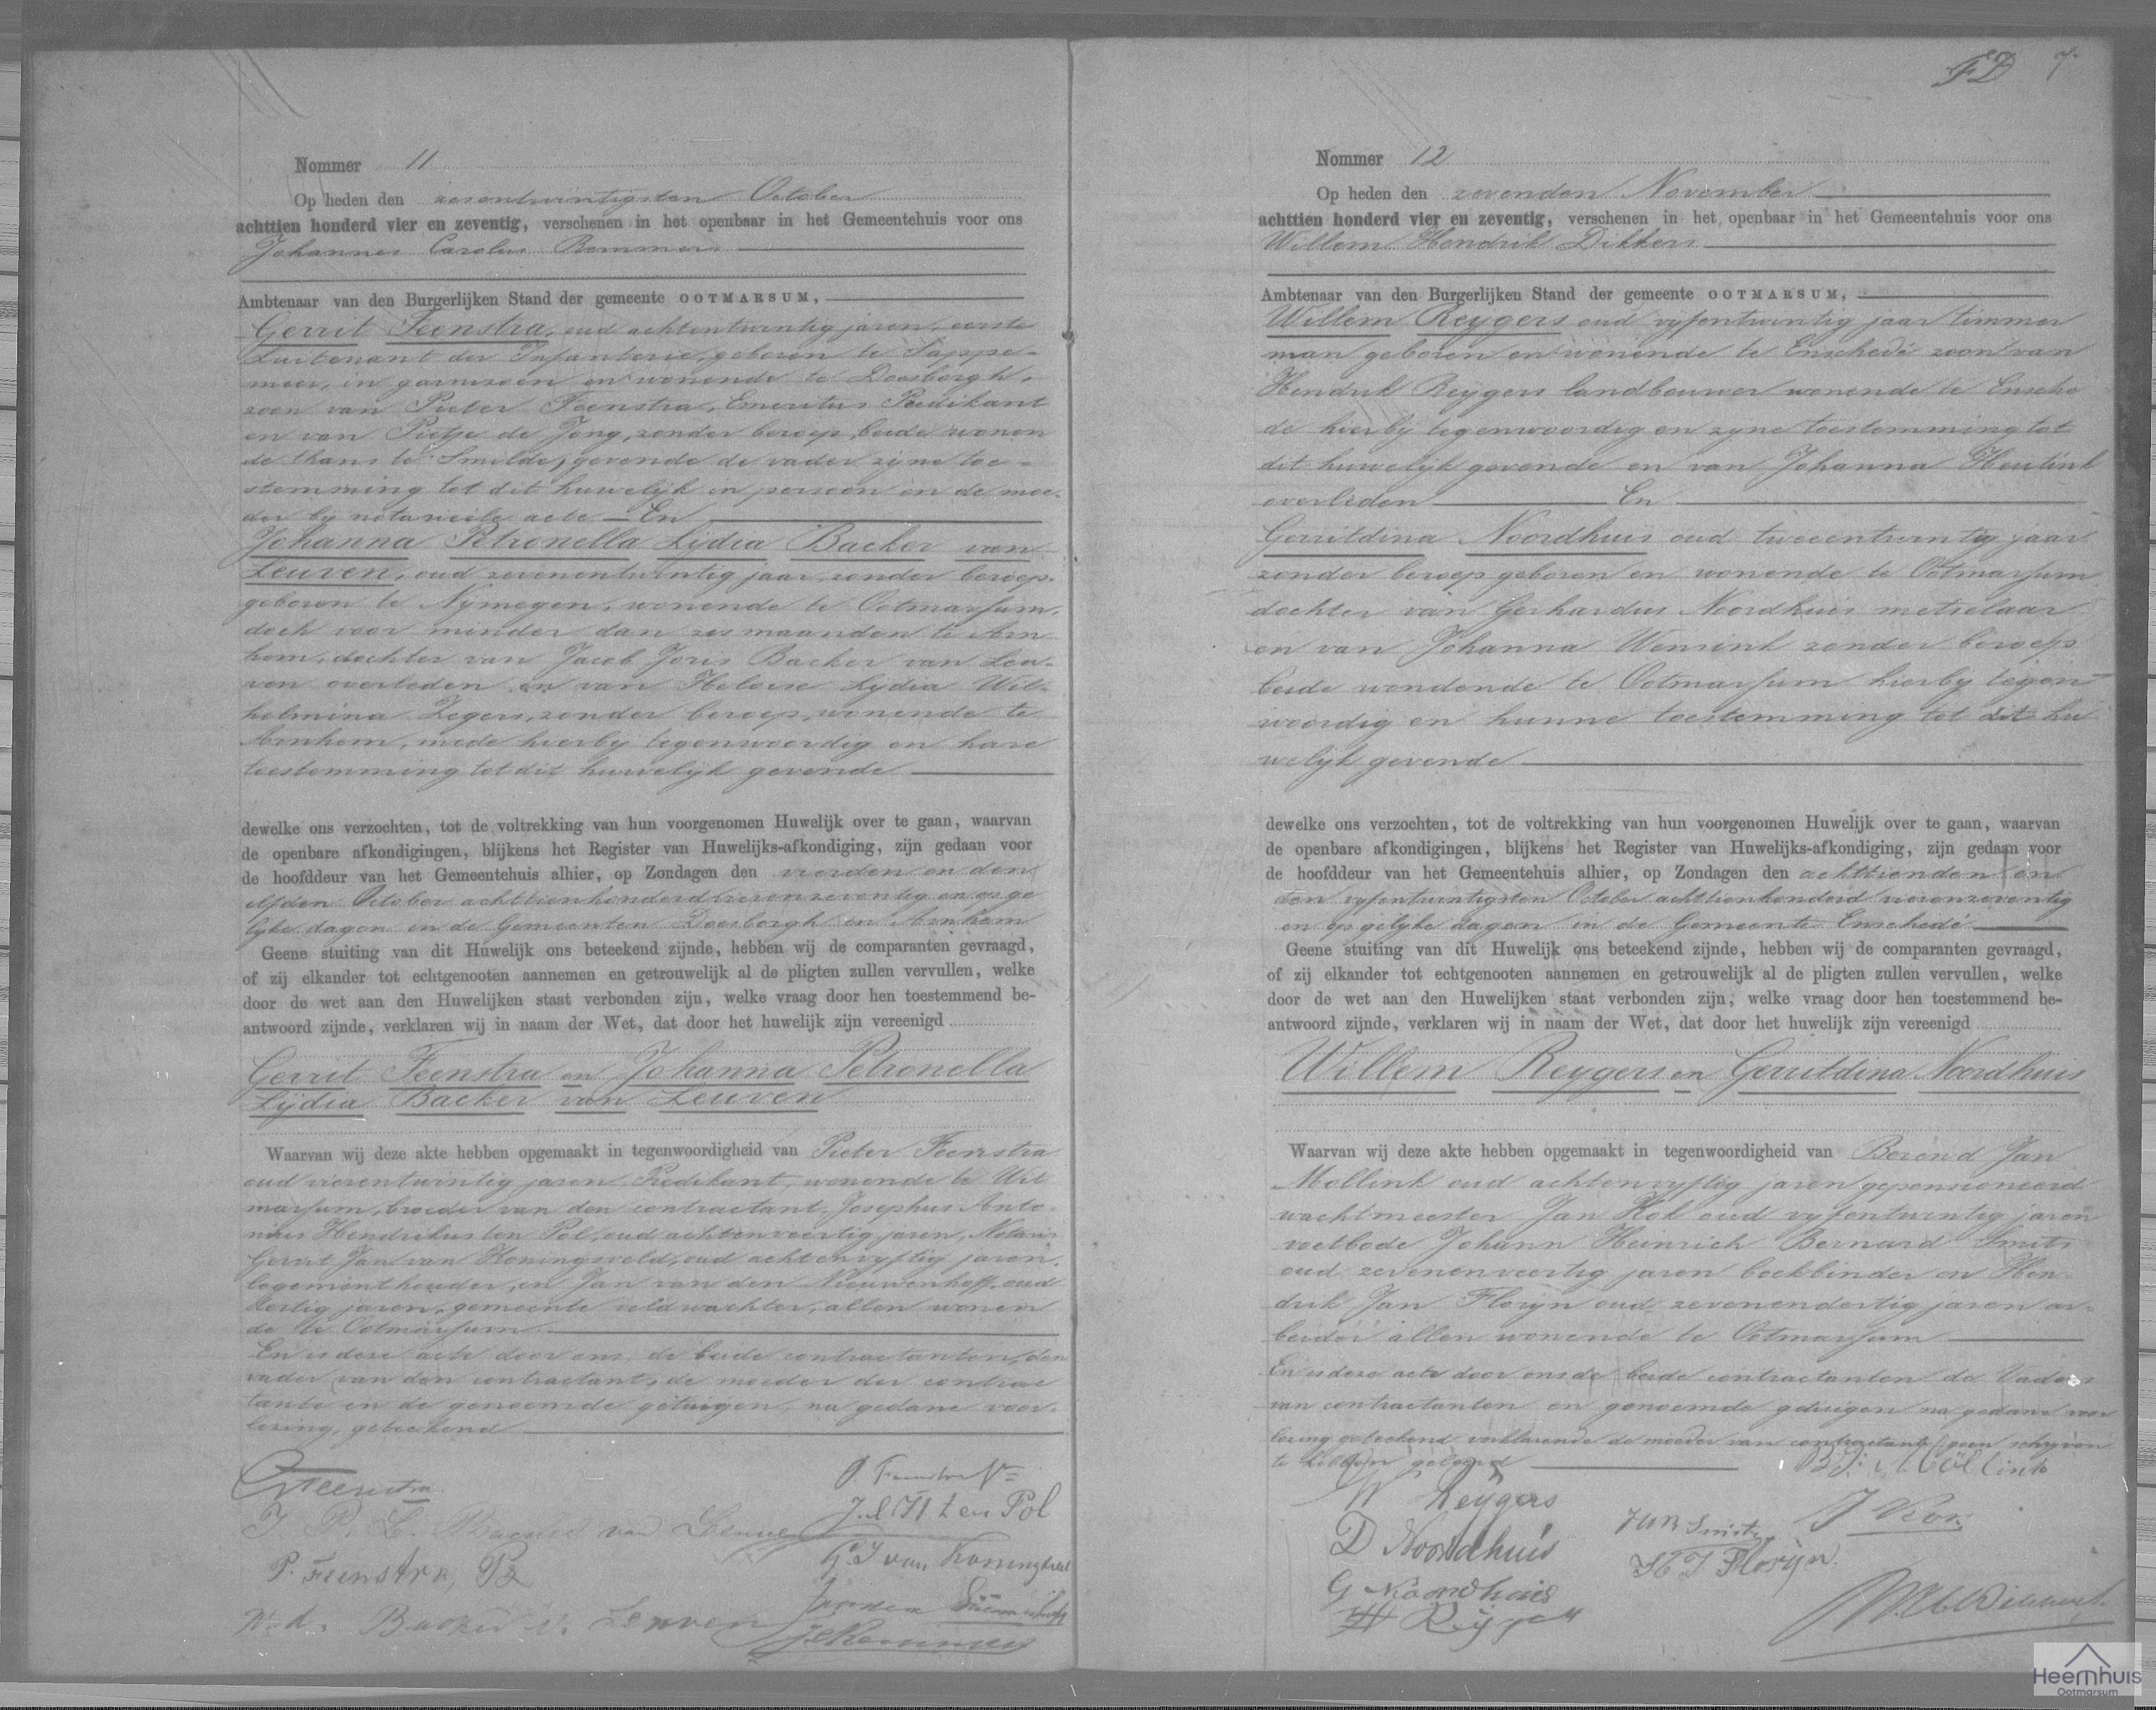 Nommer 11
Op heden den zesentwintigsten October
achttien honderd vier en zeventig, verschenen in het openbaar in het Gemeentehuis voor ons
Johannes Carolus Rommers
Ambtenaar van den Burgerlijken Stand der gemeente OOTMARSUM,
Gerrit Feenstra, oud achtentwintig jaren, eerste
Luitenant der Infanterie, geboren te Sappe-
meer, in garnizoen en wonende te Doesborgh,
zoon van Pieter Feenstra, Emeritus Predikant
en van Pietje de Jong, zonder beroep, beide wonen
de thans te Smilde, gevende de vader zijne toe-
stemming tot dit huwelijk in persoon en de moe-
der bij notarieele acte - En
Johanna Petronella Lydia Backer van
Leuven, oud zevenentwintig jaar, zonder beroep,
geboren te Nijmegen, wonende te Ootmarsum,
doch voor minder dan zes maanden te Arn
hem, dochter van Jacob Joris Backer van Leu-
ven overleden en van Heloise Lydia Wil-
helmina Zegers, zonder beroep, wonende te
Arnhem, mede hierbij tegenwoordig en hare
toestemming tot dit huwelijk gevende
dewelke ons verzochten, tot de voltrekking van hun voorgenomen Huwelijk over te gaan, waarvan
de openbare afkondigingen, blijkens het Register van Huwelijks-afkondiging, zijn gedaan voor
de hoofddeur van het Gemeentehuis alhier, op Zondagen den vierden en den
elfden October achttienhonderd vierenzeventig en op ge
lijke dagen in de Gemeenten Doesborgh en Arnhem
Geene stuiting van dit Huwelijk ons beteekend zijnde, hebben wij de comparanten gevraagd,
of zij elkander tot echtgenooten aannemen en getrouwelijk al de pligten zullen vervullen, welke
door de wet aan den Huwelijken staat verbonden zijn, welke vraag door hen toestemmend be-
antwoord zijnde, verklaren wij in naam der Wet, dat door het huwelijk zijn vereenigd
Gerrit Feenstra en Johanna Petronella
Lydia Backer van Leuven
Waarvan wij deze akte hebben opgemaakt in tegenwoordigheid van Pieter Feenstra
oud vierentwintig jaren Predikant, wonende te Wit
marsum, broeder van den contractant, Josephus Anto-
nius Hendrikus ten Pol, oud achtenveertig jaren, Notaris
Gerrit Jan van Koningsveld, oud achtenvyftig jaren,
logementhouder, en Jan van den Nieuwenhoff, oud
dertig jaren, gemeente veldwachter, allen wonen
de te Ootmarsum
En is deze acte door ons, de beide contractanten, den
vader van den contractant, de moeder der contrac
tante en de genoemde getuigen, na gedane voor-
lezing, geteekend
G Feenstra.
J. P. L. Backer van Leuven
P. Feenstra, Pz
Backer v. Leuven
P. Feenstra
J.A.H ten Pol
G J van Koningsveld
J C Rommers
FD 7.
Nommer 12
Op heden den zevenden November
achttien honderd vier en zeventig, verschenen in het openbaar in het Gemeentehuis voor ons
Willem Hendrik Dikkers
Ambtenaar van den Burgerlijken Stand der gemeente OOTMARSUM,
Willem Reygers oud vyfentwintig jaar timmer
man geboren en wonende te Enschedé zoon van
Hendrik Reygers landbouwer wonende te Ensche
de hierby tegenwoordig en zyne toestemming tot
dit huwelyk gevende en van Johanna Heutink
overleden En
Gerritdina Noordhuis oud tweeentwintig jaar
zonder beroep geboren en wonende te Ootmarsum
dochter van Gerhardus Noordhuis metselaar
en van Johanna Wensink zonder beroep
beide wondende te Ootmarsum hierby tegen
woordig en hunne toestemming tot dit hu
welyk gevende
dewelke ons verzochten, tot de voltrekking van hun voorgenomen Huwelijk over te gaan, waarvan
de openbare afkondigingen, blijkens het Register van Huwelijks-afkondiging, zijn gedaan voor
de hoofddeur van het Gemeentehuis alhier, op Zondagen den achttienden en
den vyfentwintigsten October achttienhonderd vierenzeventig
en op gelyke dagen in de Gemeente Enschedé
Geene stuiting van dit Huwelijk ons beteekend zijnde, hebben wij de comparanten gevraagd,
of zij elkander tot echtgenooten aannemen en getrouwelijk al de pligten zullen vervullen, welke
door de wet aan den Huwelijken staat verbonden zijn, welke vraag door hen toestemmend be-
antwoord zijnde, verklaren wij in naam der Wet, dat door het huwelijk zijn vereenigd
Willem Reygers en Gerritdina Noordhuis
Waarvan wij deze akte hebben opgemaakt in tegenwoordigheid van Berend Jan
Mollink oud achtenvyftig jaren gepensioneerd
wachtmeester Jan Kok oud vyfentwintig jaren
voetbode Johann Heinrich Bernard Smits
oud zevenenveertig jaren boekbinder en Hen
drik Jan Floryn oud zevenendertig jaren ar-
beider allen wonende te Ootmarsum
En is deze acte door ons de beide contractanten de Vaders
van contractanten en genoemde getuigen na gedane voor
lezing geteekend verklarende de moeder van contractante geen schryven
te hebben geleerd
W Reygers
D Noordhuis
G Noordhuis
H Reygers
B J Möllink
J Kok
JHB Smits
H J Floryn.
WHDikkers
Heemhuis
Ootmarsum